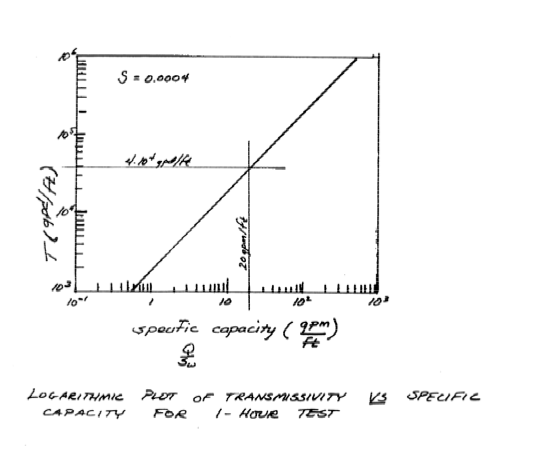 10⁶
S = 0.0004
10⁵
4.10⁴ gpd/ft
T (gpd/ft)
10⁴
20 gpm/ft
10³
10⁻¹ 1 10 10² 10³
specific capacity (gpm/ft)
Q/Sw
LOGARITHMIC PLOT OF TRANSMISSIVITY VS SPECIFIC
CAPACITY FOR 1-HOUR TEST